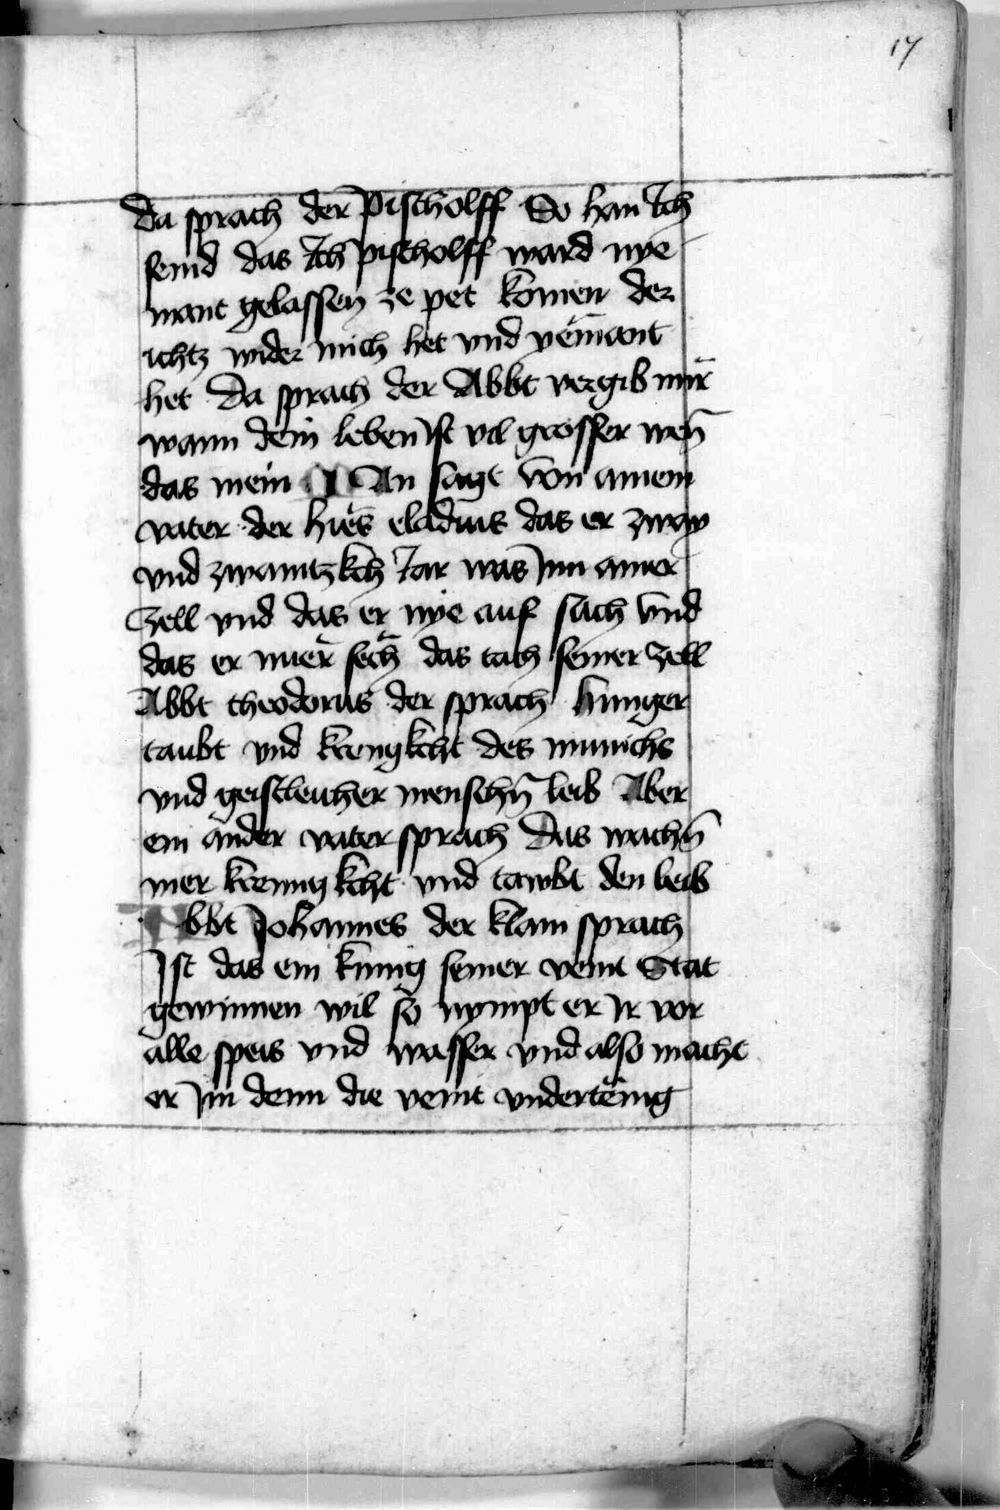 17
Da sprach der Pischolff So han Ich
seind das Ich pischolff ward nye
mant gelassen ze pet komen der
ichtz wider mich het vnd yemant
het Da sprach der Abbt vergib mir
wann dein leben ist vil grosser wen̄
das mein Man sagt von ainem
vater der hies eladius das er zway
vnd zwaintzkch Iar was Inn ainer
Zell vnd das er nye auf sach vnd
das er nuer sech das tach seiner zell
Abbt theodorus der sprach hunger
taubt vnd krengkcht des munichs
vnd geistleicher menschn̄ leib Aber
ein ander vater sprach Das wachn̄
mer krenngkcht vnd tawbt den leib
Abbt Johannes der klain sprach
Ist das ein kunig seiner veint Stat
gewinnen wil so nympt er Ir vor
alle speis vnd wasser vnd also macht
er Im denn die veint vndertenig